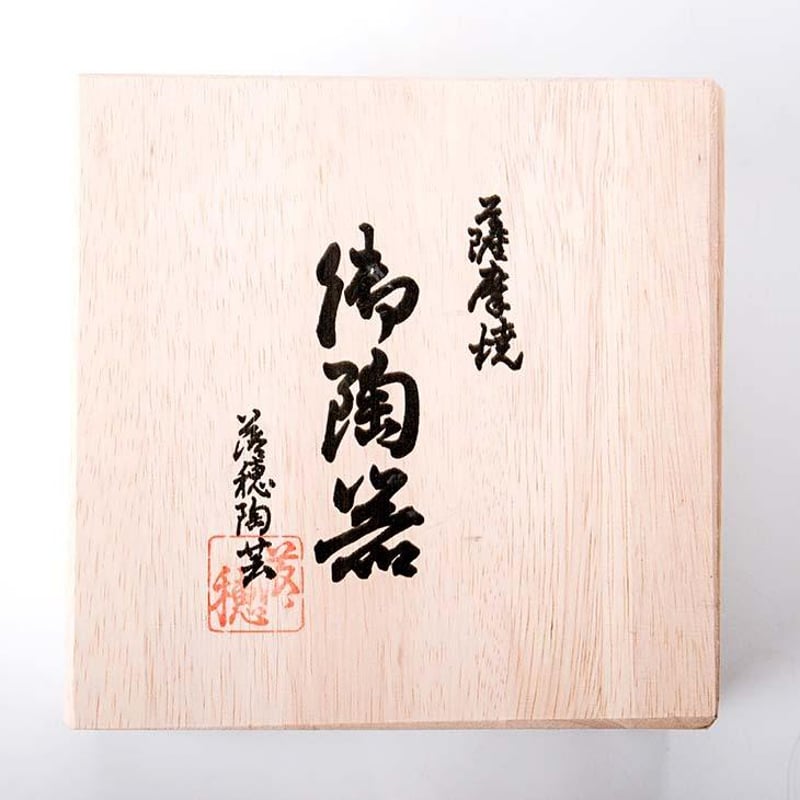 薩摩焼
御陶器
落穂陶芸
落穂